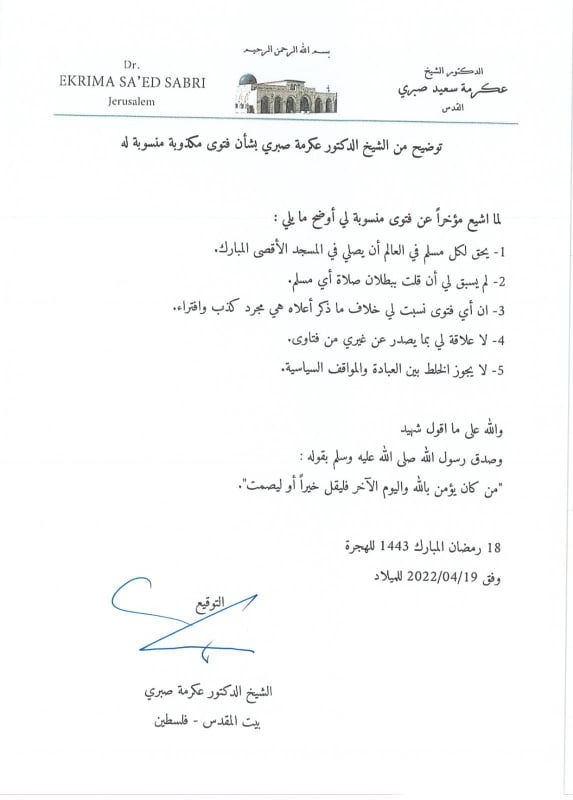 بسم الله الرحمن الرحيم
Dr.
EKRIMA SA'ED SABRI
Jerusalem
الدكتور الشيخ
عكرمة سعيد صبري
القدس
توضيح من الشيخ الدكتور عكرمة صبري بشأن فتوى مكذوبة منسوبة له
لما اشيع مؤخراً عن فتوى منسوبة لي أوضح ما يلي :
1- يحق لكل مسلم في العالم أن يصلي في المسجد الأقصى المبارك.
2- لم يسبق لي أن قلت ببطلان صلاة أي مسلم.
3- ان أي فتوى نسبت لي خلاف ما ذكر أعلاه هي مجرد كذب وافتراء.
4- لا علاقة لي بما يصدر عن غيري من فتاوى.
5- لا يجوز الخلط بين العبادة والمواقف السياسية.
والله على ما اقول شهيد
وصدق رسول الله صلى الله عليه وسلم بقوله :
"من كان يؤمن بالله واليوم الآخر فليقل خيراً أو ليصمت".
18 رمضان المبارك 1443 للهجرة
وفق 2022/04/19 للميلاد
التوقيع
الشيخ الدكتور عكرمة صبري
بيت المقدس - فلسطين